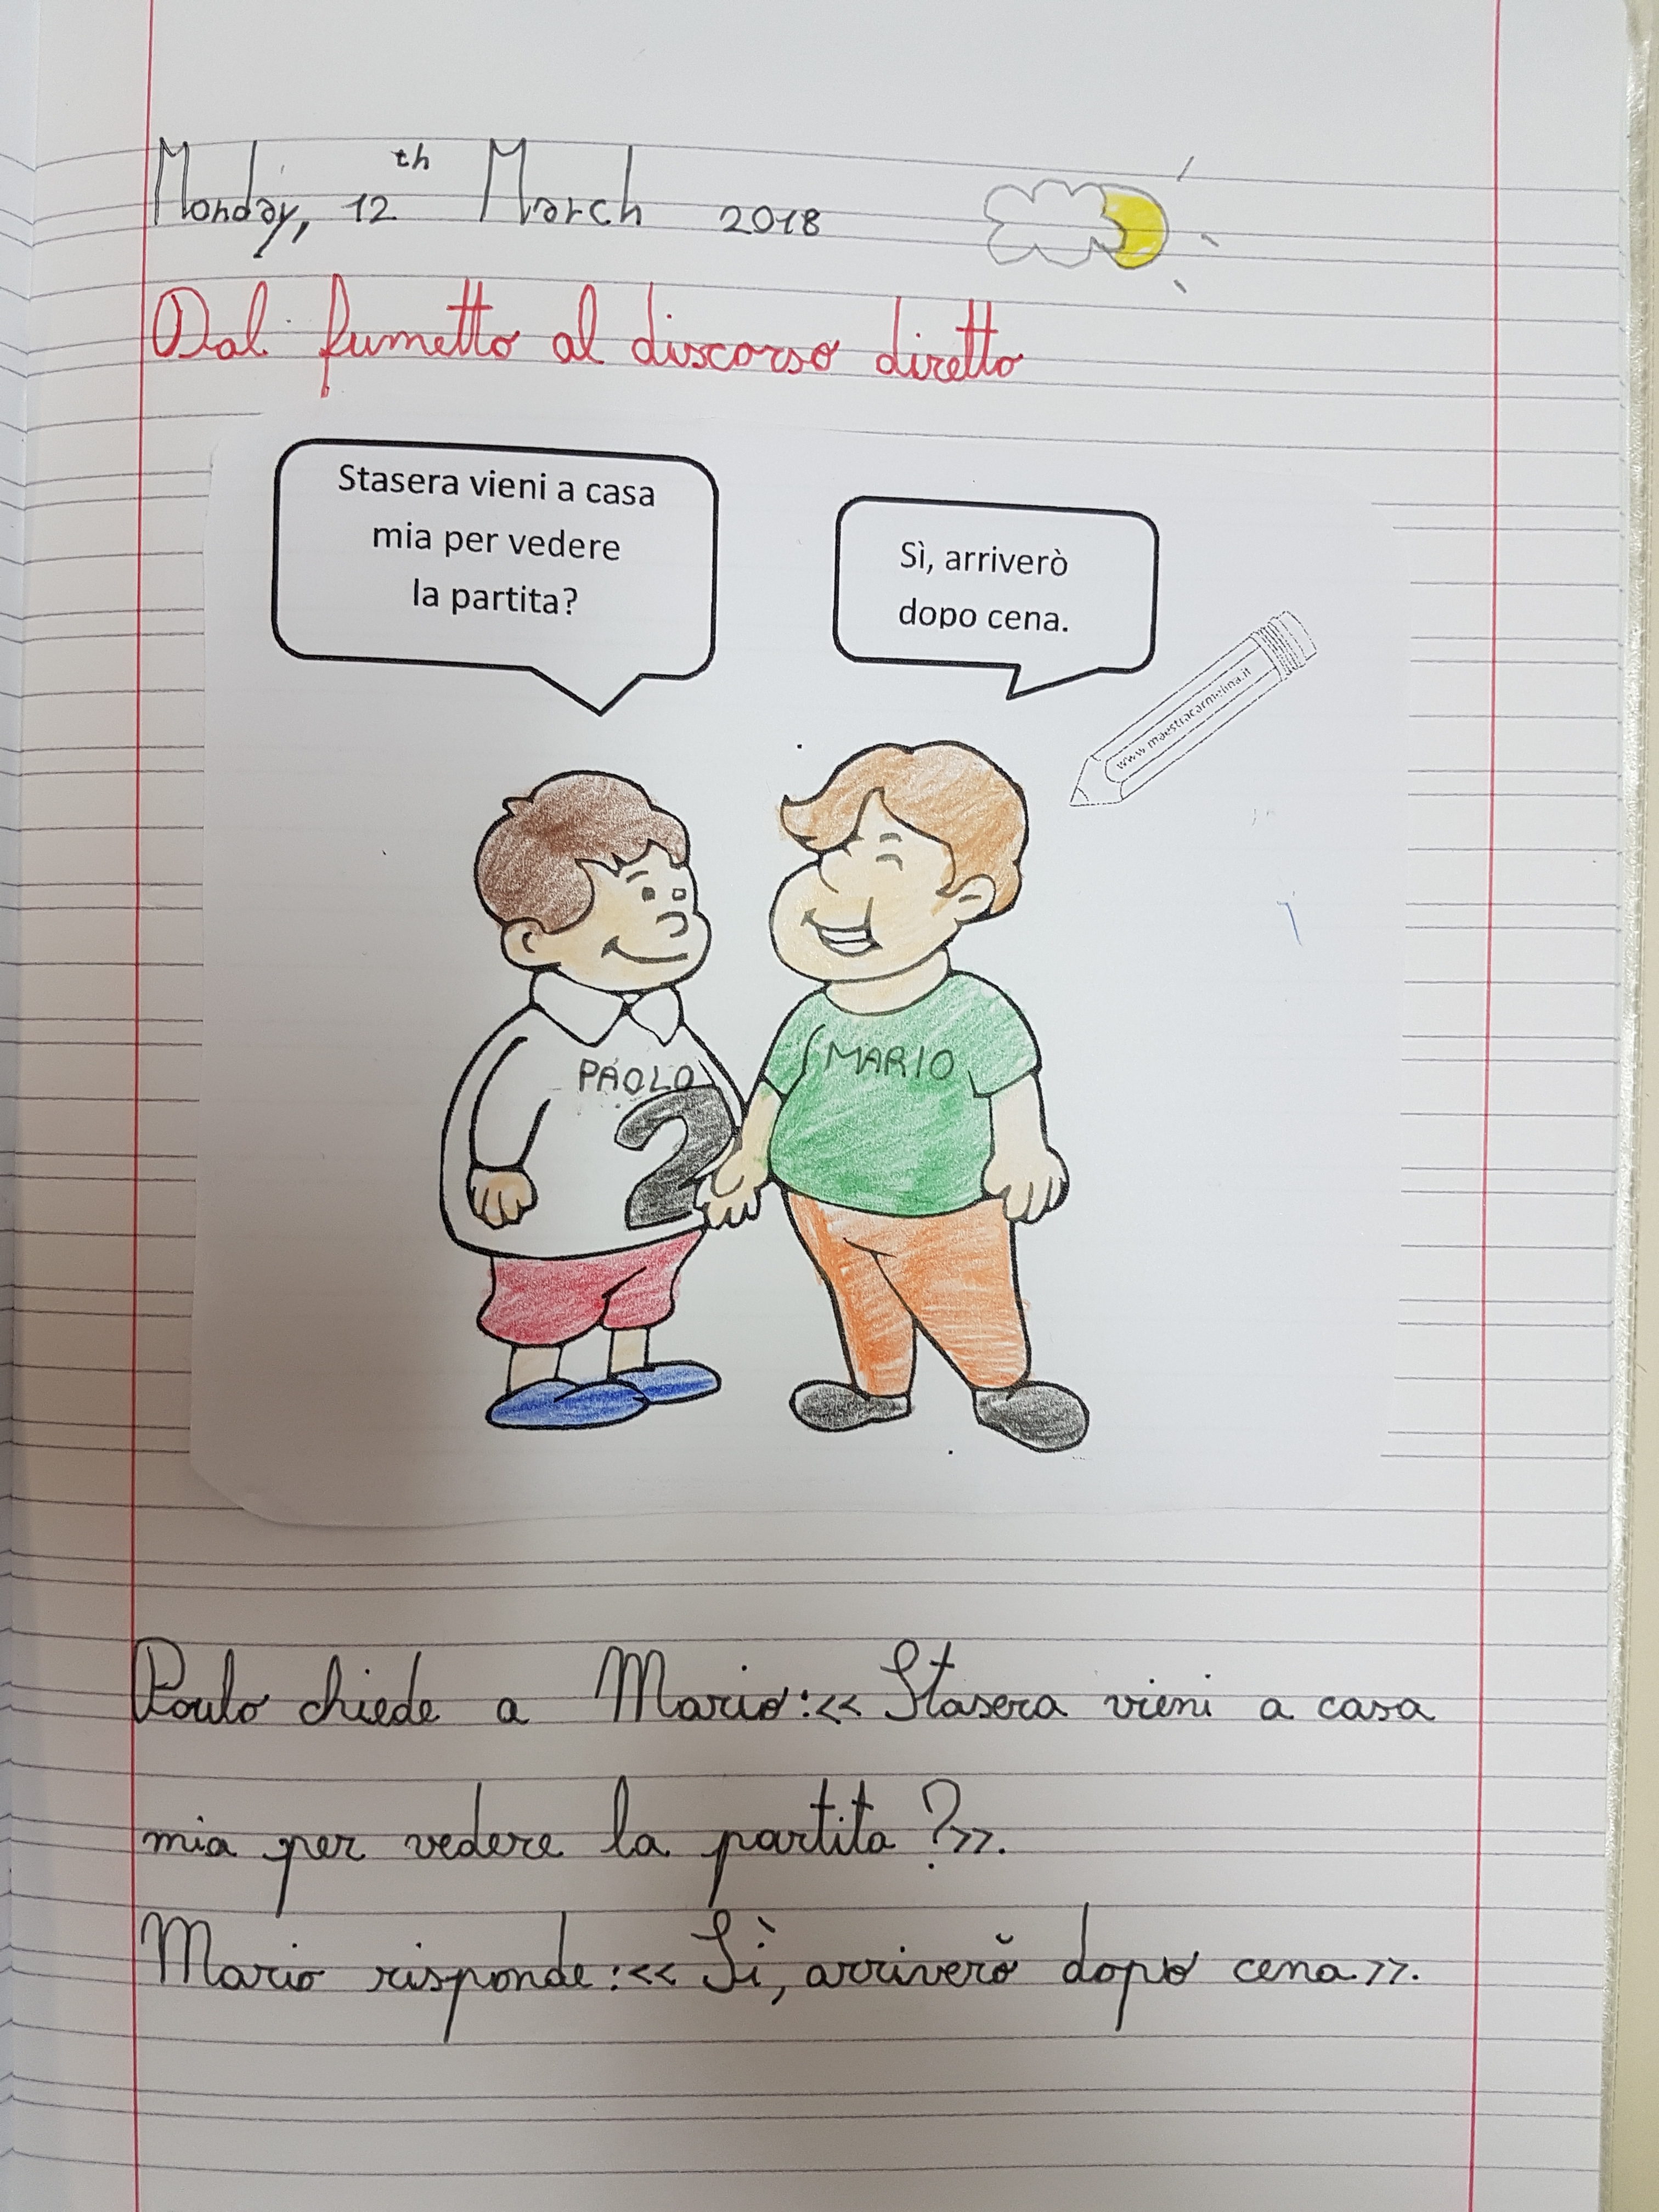 Monday, 12th March 2018
Dal fumetto al discorso diretto
Stasera vieni a casa
mia per vedere
la partita?
Sì, arriverò
dopo cena.
www.maestracarmelina.it
PAOLO
MARIO
2
Paolo chiede a Mario:<< Stasera vieni a casa
mia per vedere la partita?>>.
Mario risponde:<< Sì, arriverò dopo cena.>>.